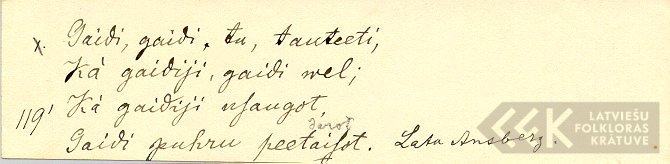 x. Gaidi, gaidi, tu, tauteeti,
Kà gaidiji, gaidi wel;
119' Kà gaidiji usaugot,
darot
Gaidi puhru peetaisot. Lata Ansberg.
LATVIEŠU
FOLKLORAS
KRĀTUVE